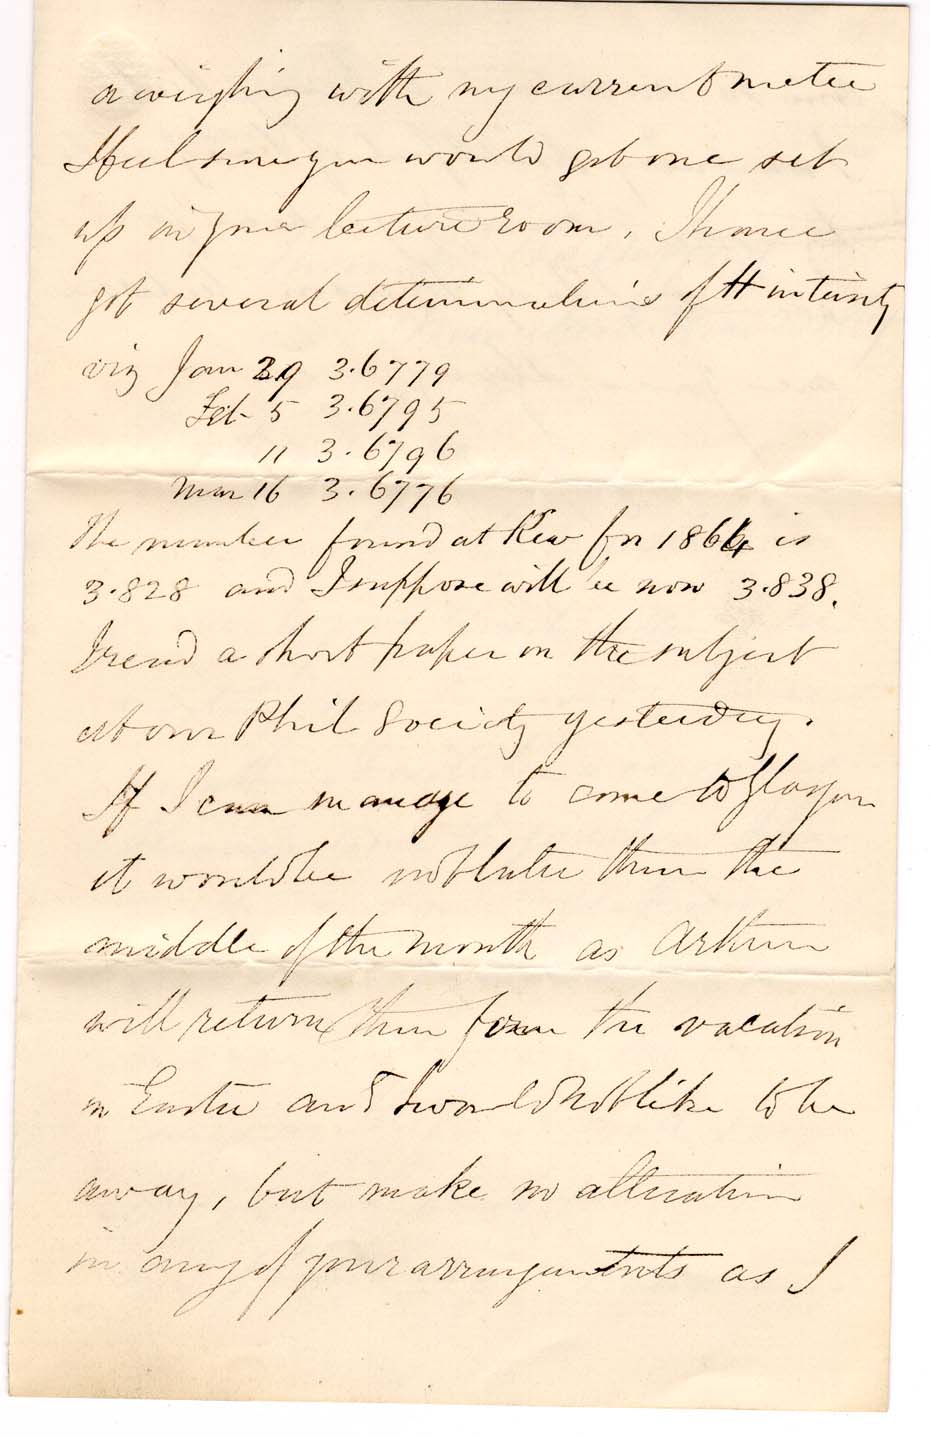 a weighing with my current meter
I feel sure you would get one set
up in your lecture room. I have
got several determinations of H intensity
viz Jan 29 3.6779
Feb 5 3.6795
11 3.6796
Mar 16 3.6776
The number found at Kew for 1864 is
3.828 and I suppose will be now 3.838.
I read a short paper on the subject
at our Phil Society yesterday.
If I can manage to come to Glasgow
it would be not later than the
middle of the month as Arthur
will return then from the vacation
in Easter and I would not like to be
away, but make no alteration
in any of your arrangements as I